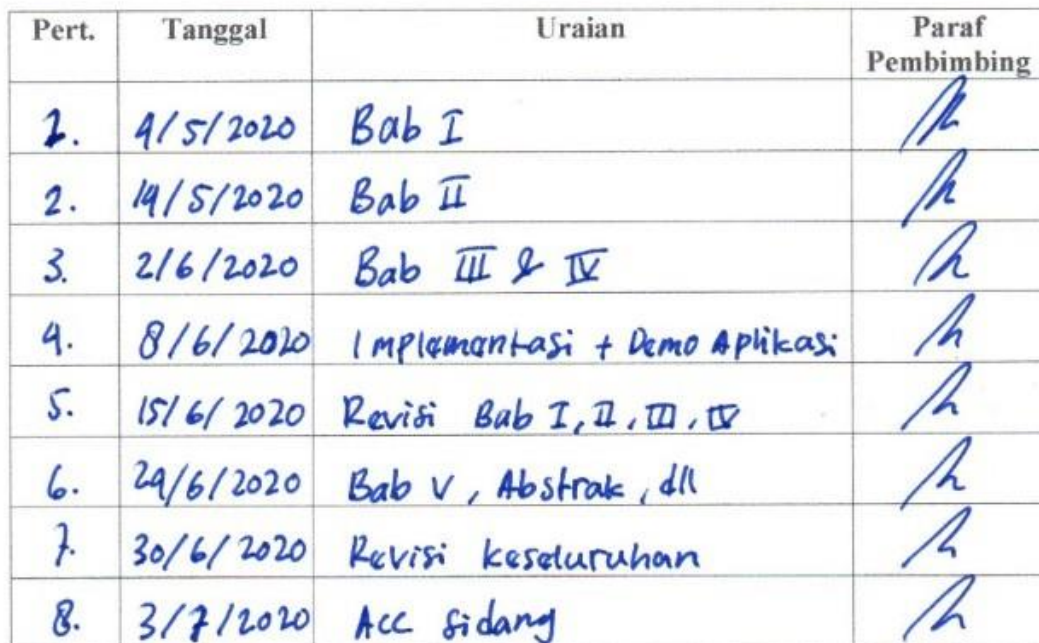 Pert. Tanggal Uraian Paraf Pembimbing
1. 4/5/2020 Bab I
2. 14/5/2020 Bab II
3. 2/6/2020 Bab III & IV
4. 8/6/2020 Implementasi + Demo Aplikasi
5. 15/6/2020 Revisi Bab I, II, III, IV
6. 24/6/2020 Bab V, Abstrak, dll
7. 30/6/2020 Revisi keseluruhan
8. 3/7/2020 Acc Sidang